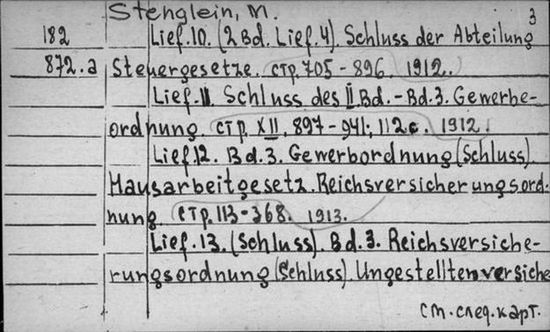 Stenglein, M. 3
182 Lief. 10. (2 Bd. Lief. 4). Schluss der Abteilung
872.a Steuergesetze. стр. 705-896. 1912.
Lief. 11. Schluss des II. Bd. - Bd. 3. Gewerbe-
ordnung. стр. XII, 897-941; 112 с. 1912.
Lief. 12. Bd. 3. Gewerbordnung (Schluss).
Hausarbeitgesetz. Reichsversicherungsord-
nung стр. 113-368. 1913.
Lief. 13. (Schluss). Bd. 3. Reichsversiche-
rungsordnung (Schluss). Ungestelltenversiche
см. след. карт.